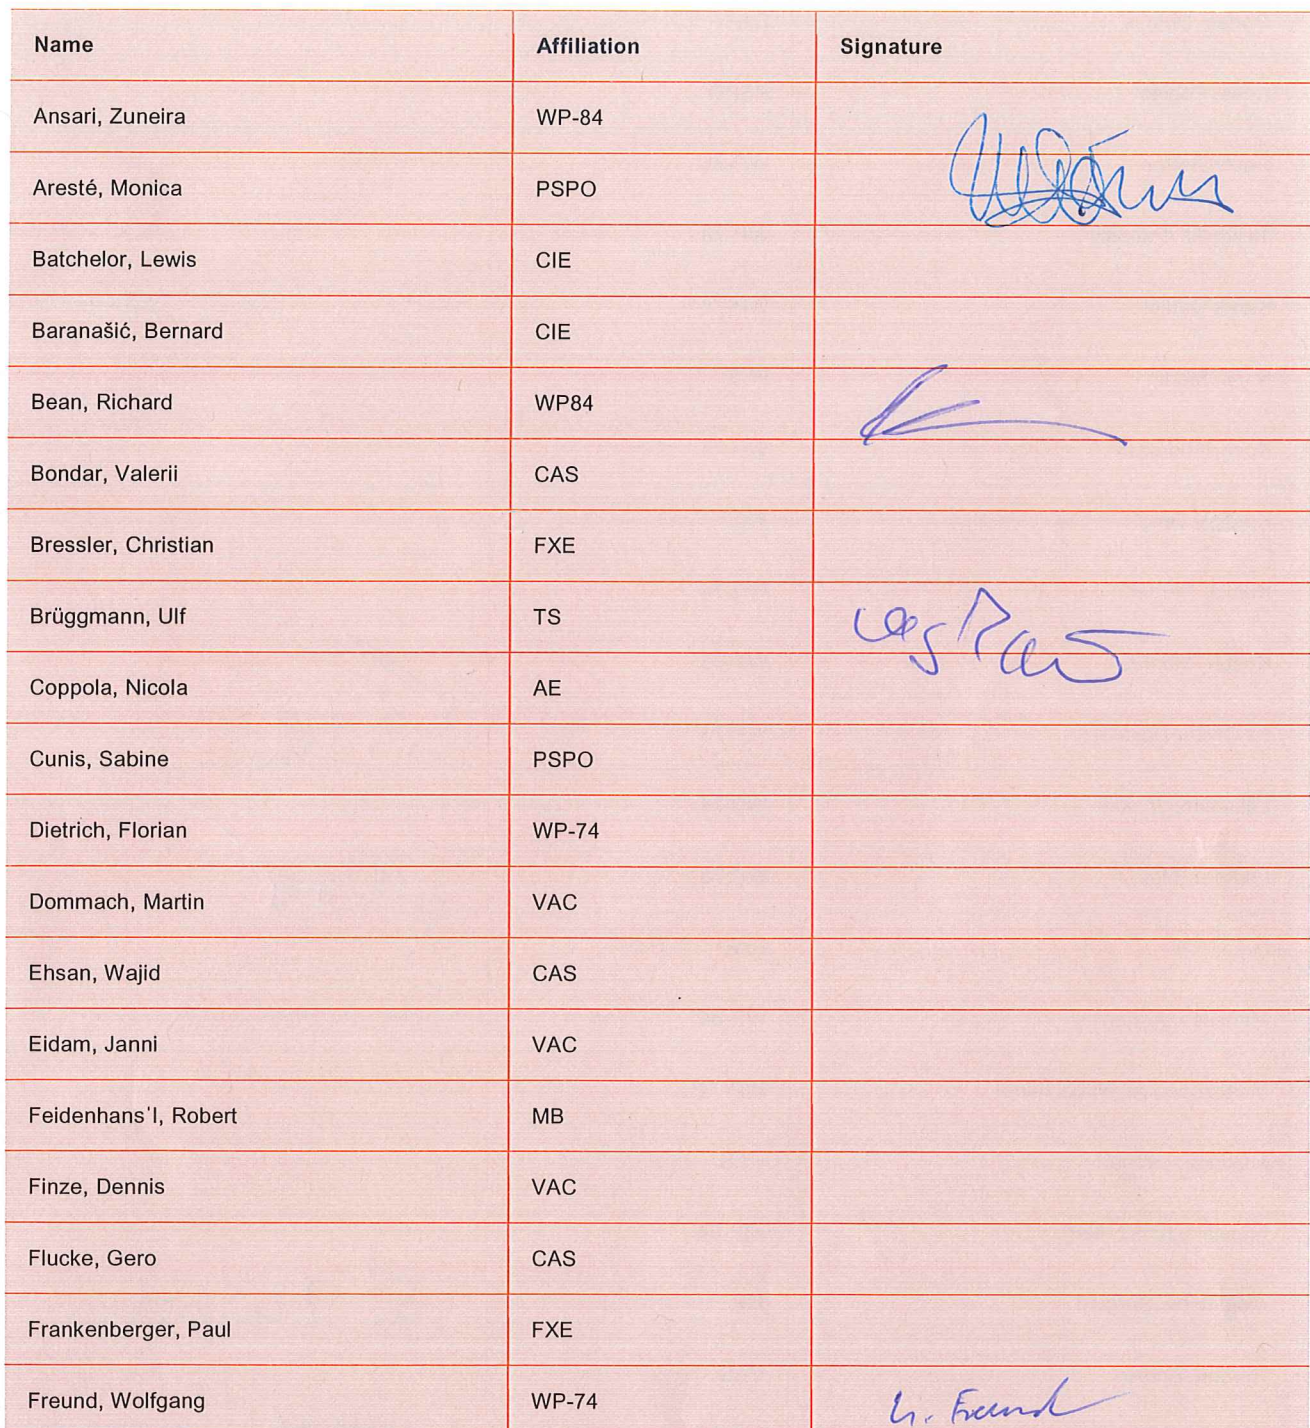 Name Affiliation Signature
Ansari, Zuneira WP-84
Aresté, Monica PSPO
Batchelor, Lewis CIE
Baranašić, Bernard CIE
Bean, Richard WP84
Bondar, Valerii CAS
Bressler, Christian FXE
Brüggmann, Ulf TS
Coppola, Nicola AE
Cunis, Sabine PSPO
Dietrich, Florian WP-74
Dommach, Martin VAC
Ehsan, Wajid CAS
Eidam, Janni VAC
Feidenhans'l, Robert MB
Finze, Dennis VAC
Flucke, Gero CAS
Frankenberger, Paul FXE
Freund, Wolfgang WP-74 W. Freund